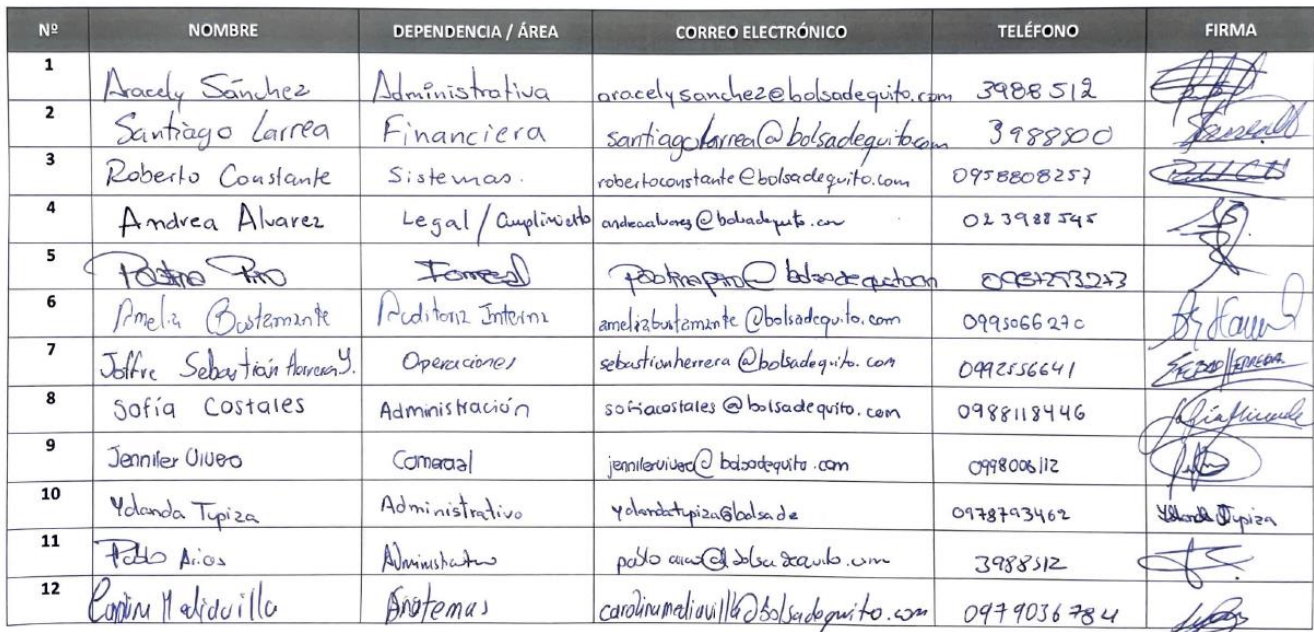 Nº NOMBRE DEPENDENCIA / ÁREA CORREO ELECTRÓNICO TELÉFONO FIRMA
1 Aracely Sánchez Administrativa aracelysanchez@bolsadequito.com 3988512
2 Santiago Larrea Financiera santiagolarrea@bolsadequito.com 3988500
3 Roberto Constante Sistemas. robertoconstante@bolsadequito.com 0958808257
4 Andrea Alvarez Legal / Cumplimiento andreaalvarez@bolsadequito.com 023988545
5
6 Amelia Bustamante Auditoria Interna ameliabustamante@bolsadequito.com 0995066270
7 Joffre Sebastián Herrera Y. Operaciones sebastianherrera@bolsadequito.com 0992556641
8 Sofía Costales Administración sofiacostales@bolsadequito.com 0988118446
9 Jennifer Vivero Comercial jennifervivero@bolsadequito.com 0998006112
10 Yolanda Tupiza Administrativo yolandatupiza@bolsade 0978793462 Yolanda Tupiza
11 Pablo Arias Administrativo 3988512
12 Mediavilla carolinamediavilla@bolsadequito.com 0979036784